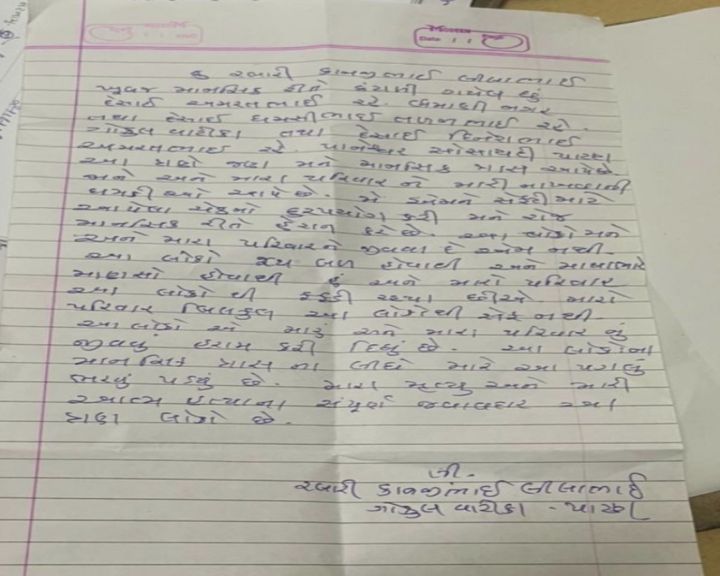 Date / /
હુ રબારી કાનજીભાઈ લીલાભાઈ
ખુબજ માનસિક રીતે કંટાળી ગયેલ છુ
દેસાઈ અમરતભાઈ રહે.
તથા દેસાઈ ધમશીભાઈ રહે.
ગોકુલ વાટીકા તથા દેસાઈ દિનેશભાઈ
અમરતભાઈ રહે. પાટણ
આ ત્રણે જણા મને માનસિક ત્રાસ આપે છે.
અને અને મારા પરિવાર ને મારી નાખવાની
ધમકીઓ આપે છે. મે એમને સેફટી માટે
આપેલા ચેકનો દુરઉપયોગ કરી મને રોજ
માનસિક રીતે હેરાન કરે છે. આ લોકો મને
અને મારા પરિવારને જીવવા દે એમ નથી.
આ લોકો હોવાથી અને માથાભારે
માણસો હોવાથી હું અને મારો પરિવાર
આ લોકો થી ફફડી રહ્યા છીએ મારો
પરિવાર બિલકુલ આ લોકોથી સેફ નથી.
આ લોકો એ મારું અને મારા પરિવાર નું
જીવવું હરામ કરી દિધું છે. આ લોકોના
માનસિક ત્રાસ ના લીધે મારે આ પગલું
ભરવું પડ્યું છે. મારા મૃત્યુ અને મારી
આત્મ હત્યાના સંપૂર્ણ જવાબદાર આ
ત્રણ લોકો છે.
લી.
રબારી કાનજીભાઈ લીલાભાઈ
ગોકુલ વાટીકા - પાટણ